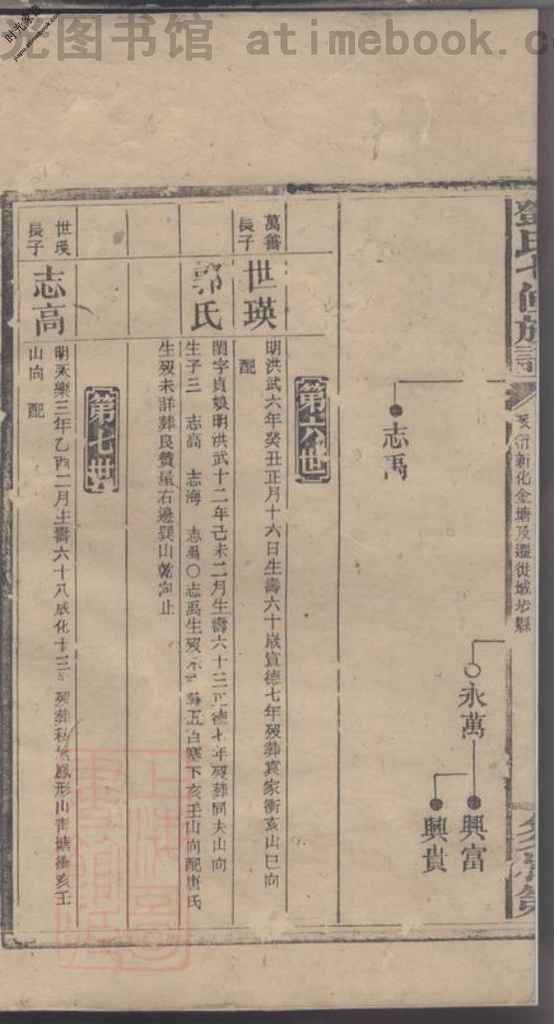 光图书馆 atimebook.c
时光家谱
鄧氏七修族譜
及新化金塘及遷徙城步縣
志禹
永萬
興富
興貴
第六世
萬善
長子
世瑛
明洪武六年癸丑正月十六日生壽六十歲宣德七年歿葬袁家衝亥山巳向
配
郭氏
閨字貞娘明洪武十二年己未二月生壽六十三正德七年歿葬同夫山向
生子三 志高 志海 志禹○志禹生歿葬五白寨下亥壬山向配唐氏
生歿未詳葬良贊屋右邊巽山乾向止
第七世
世瑛
長子
志高
明永樂三年乙酉二月生壽六十八成化十二歿葬鳳形山亥壬
山向 配